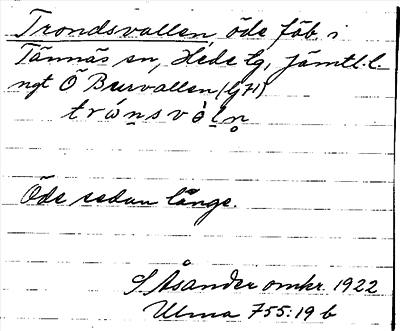 Trondsvallen, öde fäb. i
Tännäs sn, Hede tg, Jämtl. l.
ngt Ö Burvallen (G71)
Öde sedan länge.
S Åsander omkr. 1922
Ulma 755:19 b